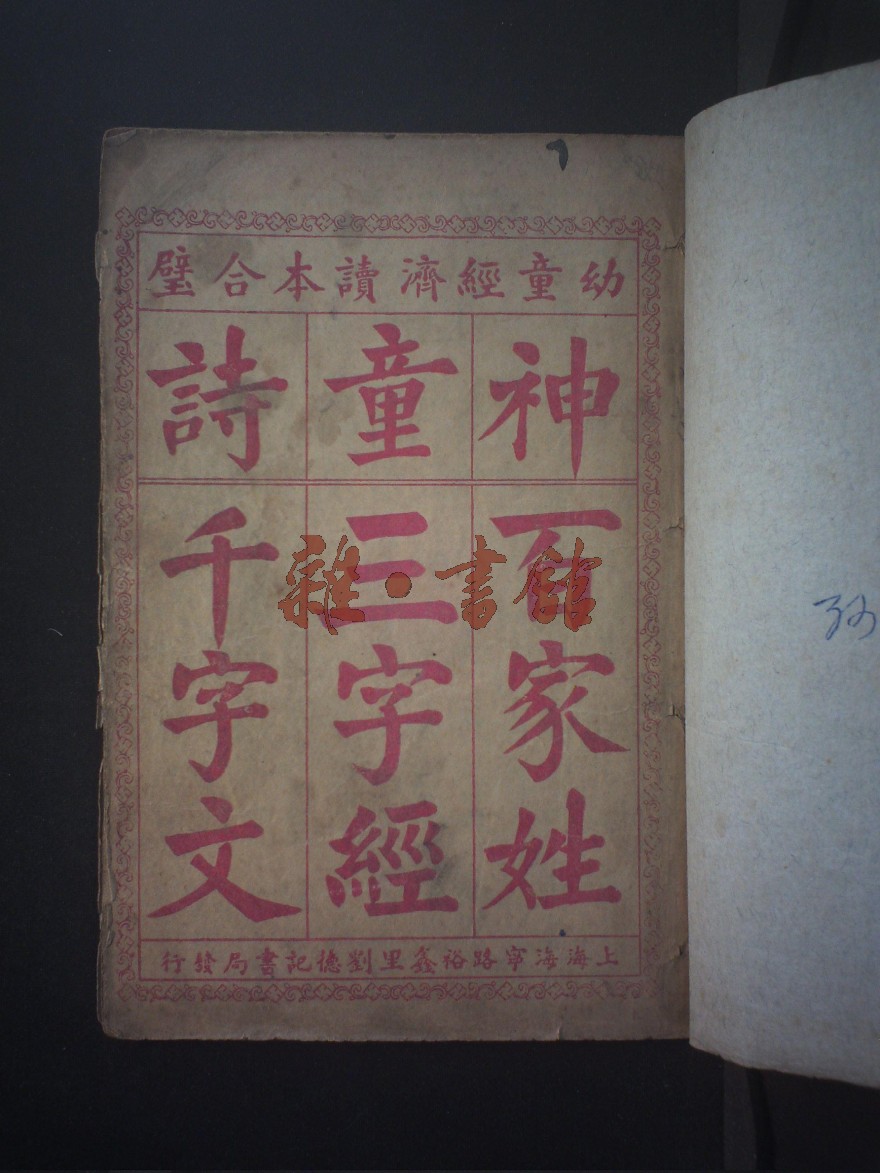 幼童經濟讀本合璧
神童詩
百家姓
三字經
千字文
雜·書館
上海海寧路裕鑫里劉德記書局發行